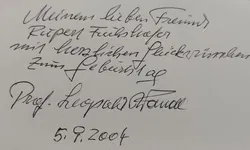 Meinem lieben Freund
Rupert Frühstorfer
mit herzlichen Glückwünschen
zum Geburtstag
Prof. Leopold
5.9.2004